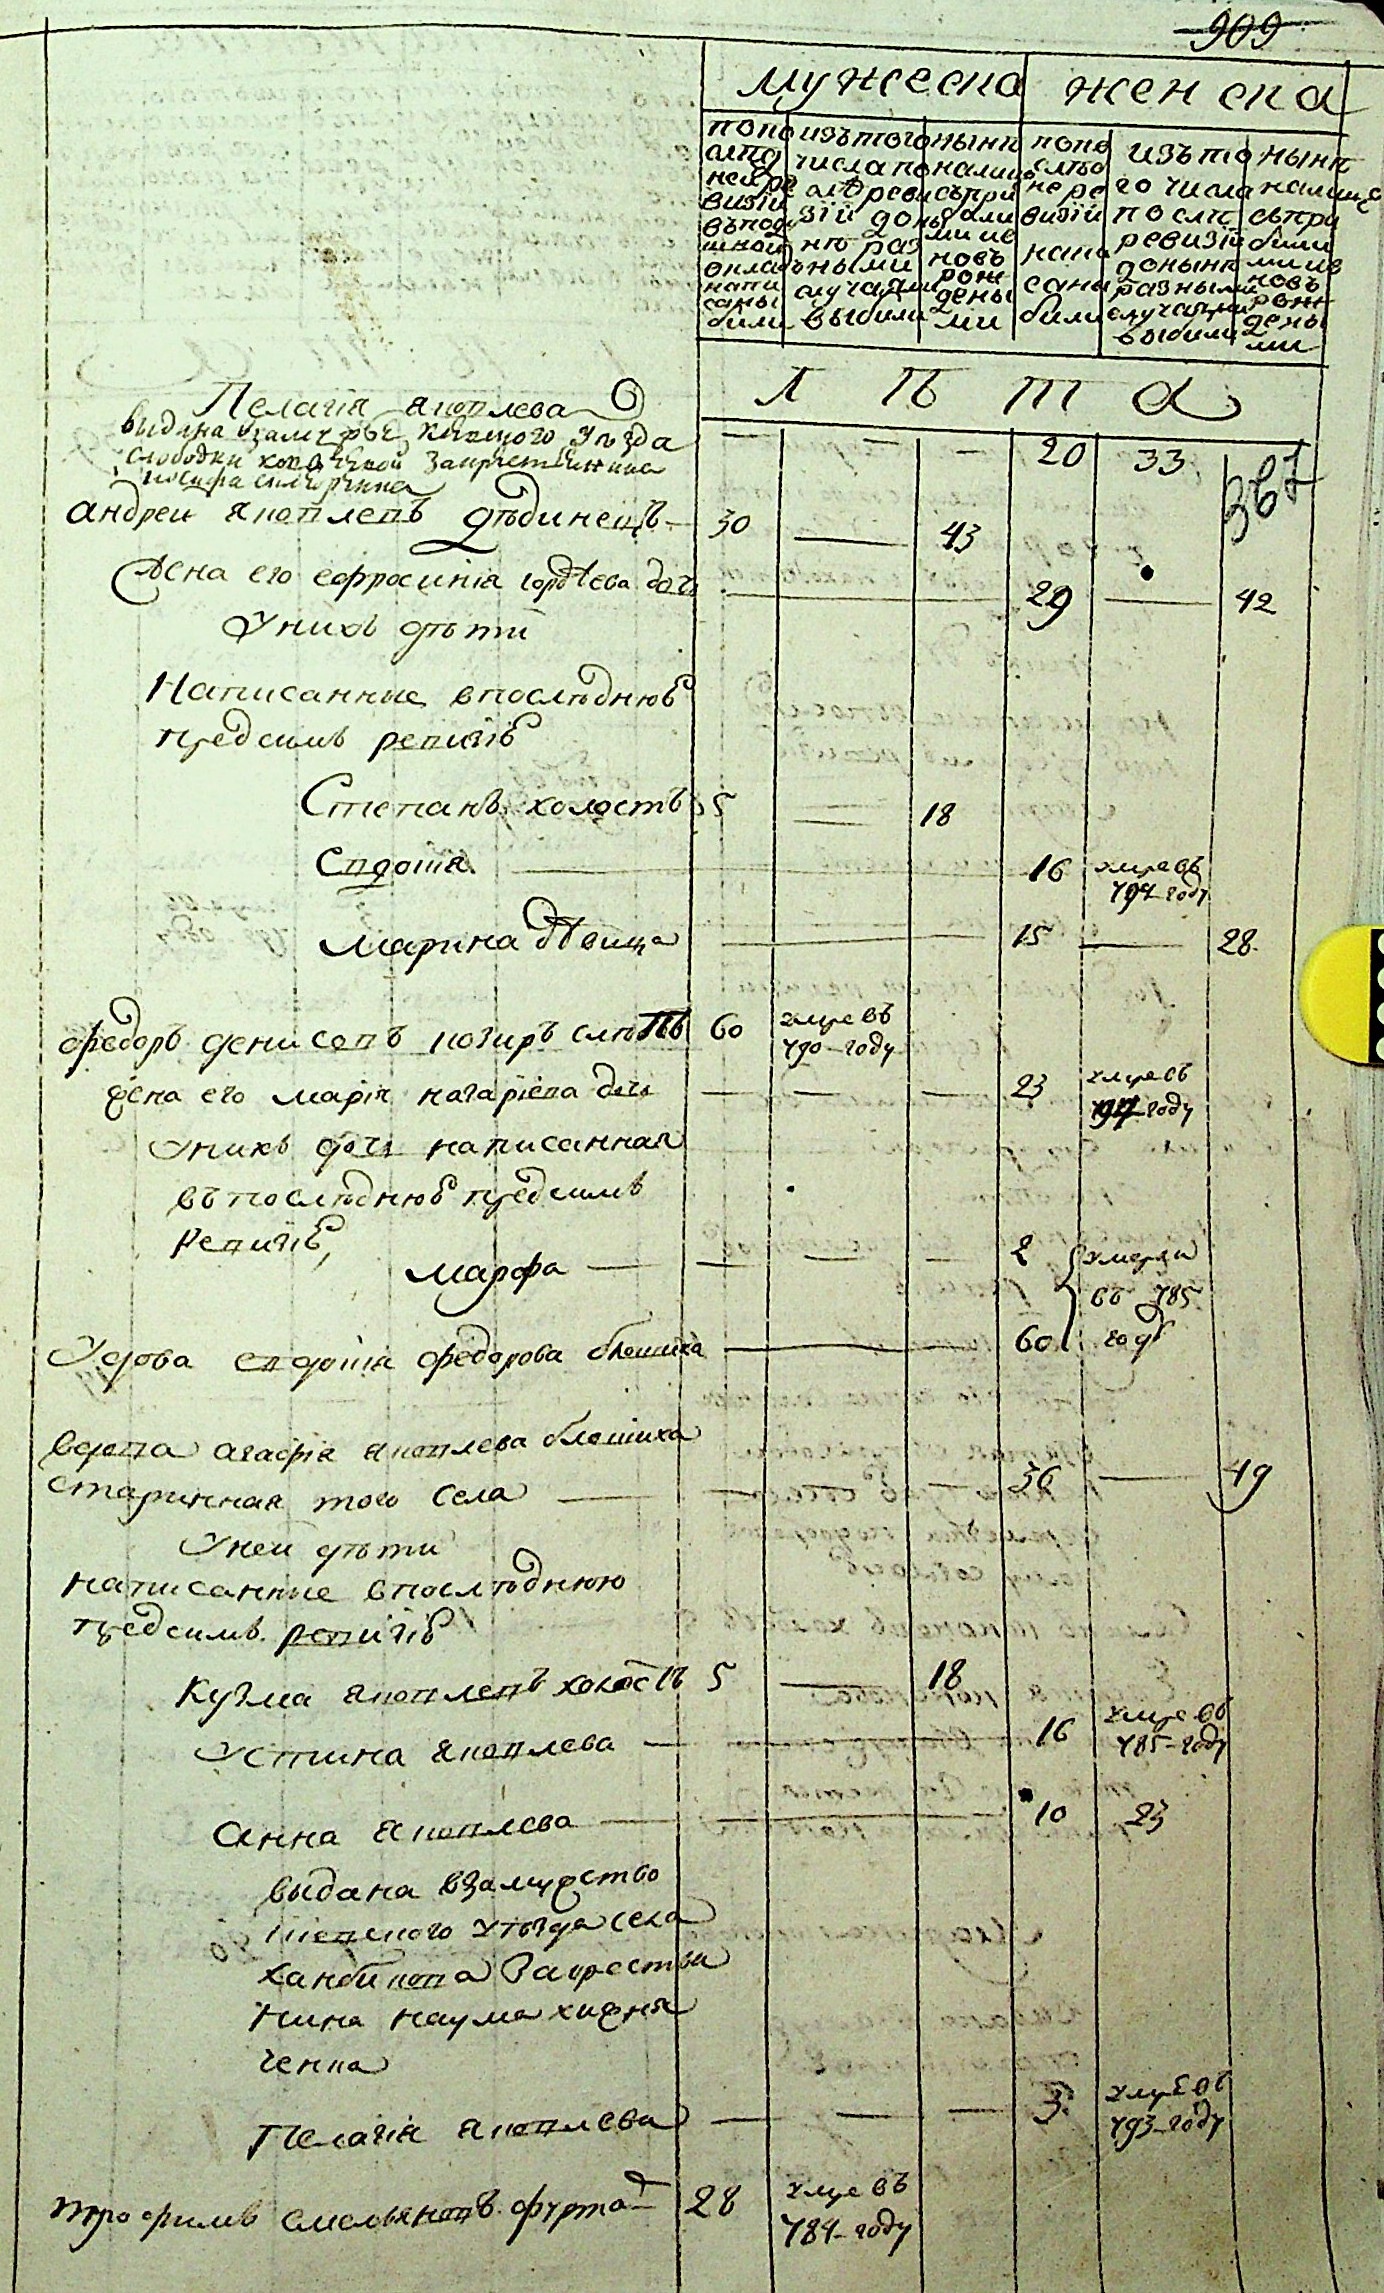 909
мужеска женска
попо
слѣд
ней ре
визіи
въподу
шной
окладъ
напи
саны
были
изътого
числа по
слѣ реви
зіи доны
нѣ раз
ными
случаями
выбили
нынѣ
налице
съпри
были
ми ив
новъ
рож
дены
ми
попо
слѣд
не ре
визіи
напи
саны
били
изъ то
го числа
послѣ
ревизіи
донынѣ
разными
случаями
выбили
нынѣ
налице
съпри
были
ми ив
новъ
рож
дены
ми
лѣта
Пелагія яковлева
выдана взамужье Уѣзда
слободки 20 33
андрей яковлевъ дѣдинецъ 30 43
Жена его ефросинія гордѣева дочь 29 42
Унихъ дѣти
Написанные впослѣднюю
предсимъ ревизію
Степанъ холостъ 5 18
Євдокія 16 умре въ
794 году
Марина дѣвица 15 28
федоръ денисовъ козиръ слѣпъ 60 умре въ
790 году
Жена его марія дочь 23 умре въ
году
Унихъ дочь написанная
въпослѣднюю предсимъ
Ревизію
Марфа 2 умерли
въ 785
Удова федорова 60 году
Вдова агафія яковлева
старинная того села 36 49
Уней дѣти
написанные впослѣднюю
предсимъ ревизію
Кузма яковлевъ холостъ 5 18
Устина яковлева 16 умре въ
785 году
Анна яковлева 10 23
выдана взамужство
уѣзда села
нина наума
ченка
Пелагія яковлева 3 умре въ
793 году
трофимъ омельяновъ 28 умре въ
784 году